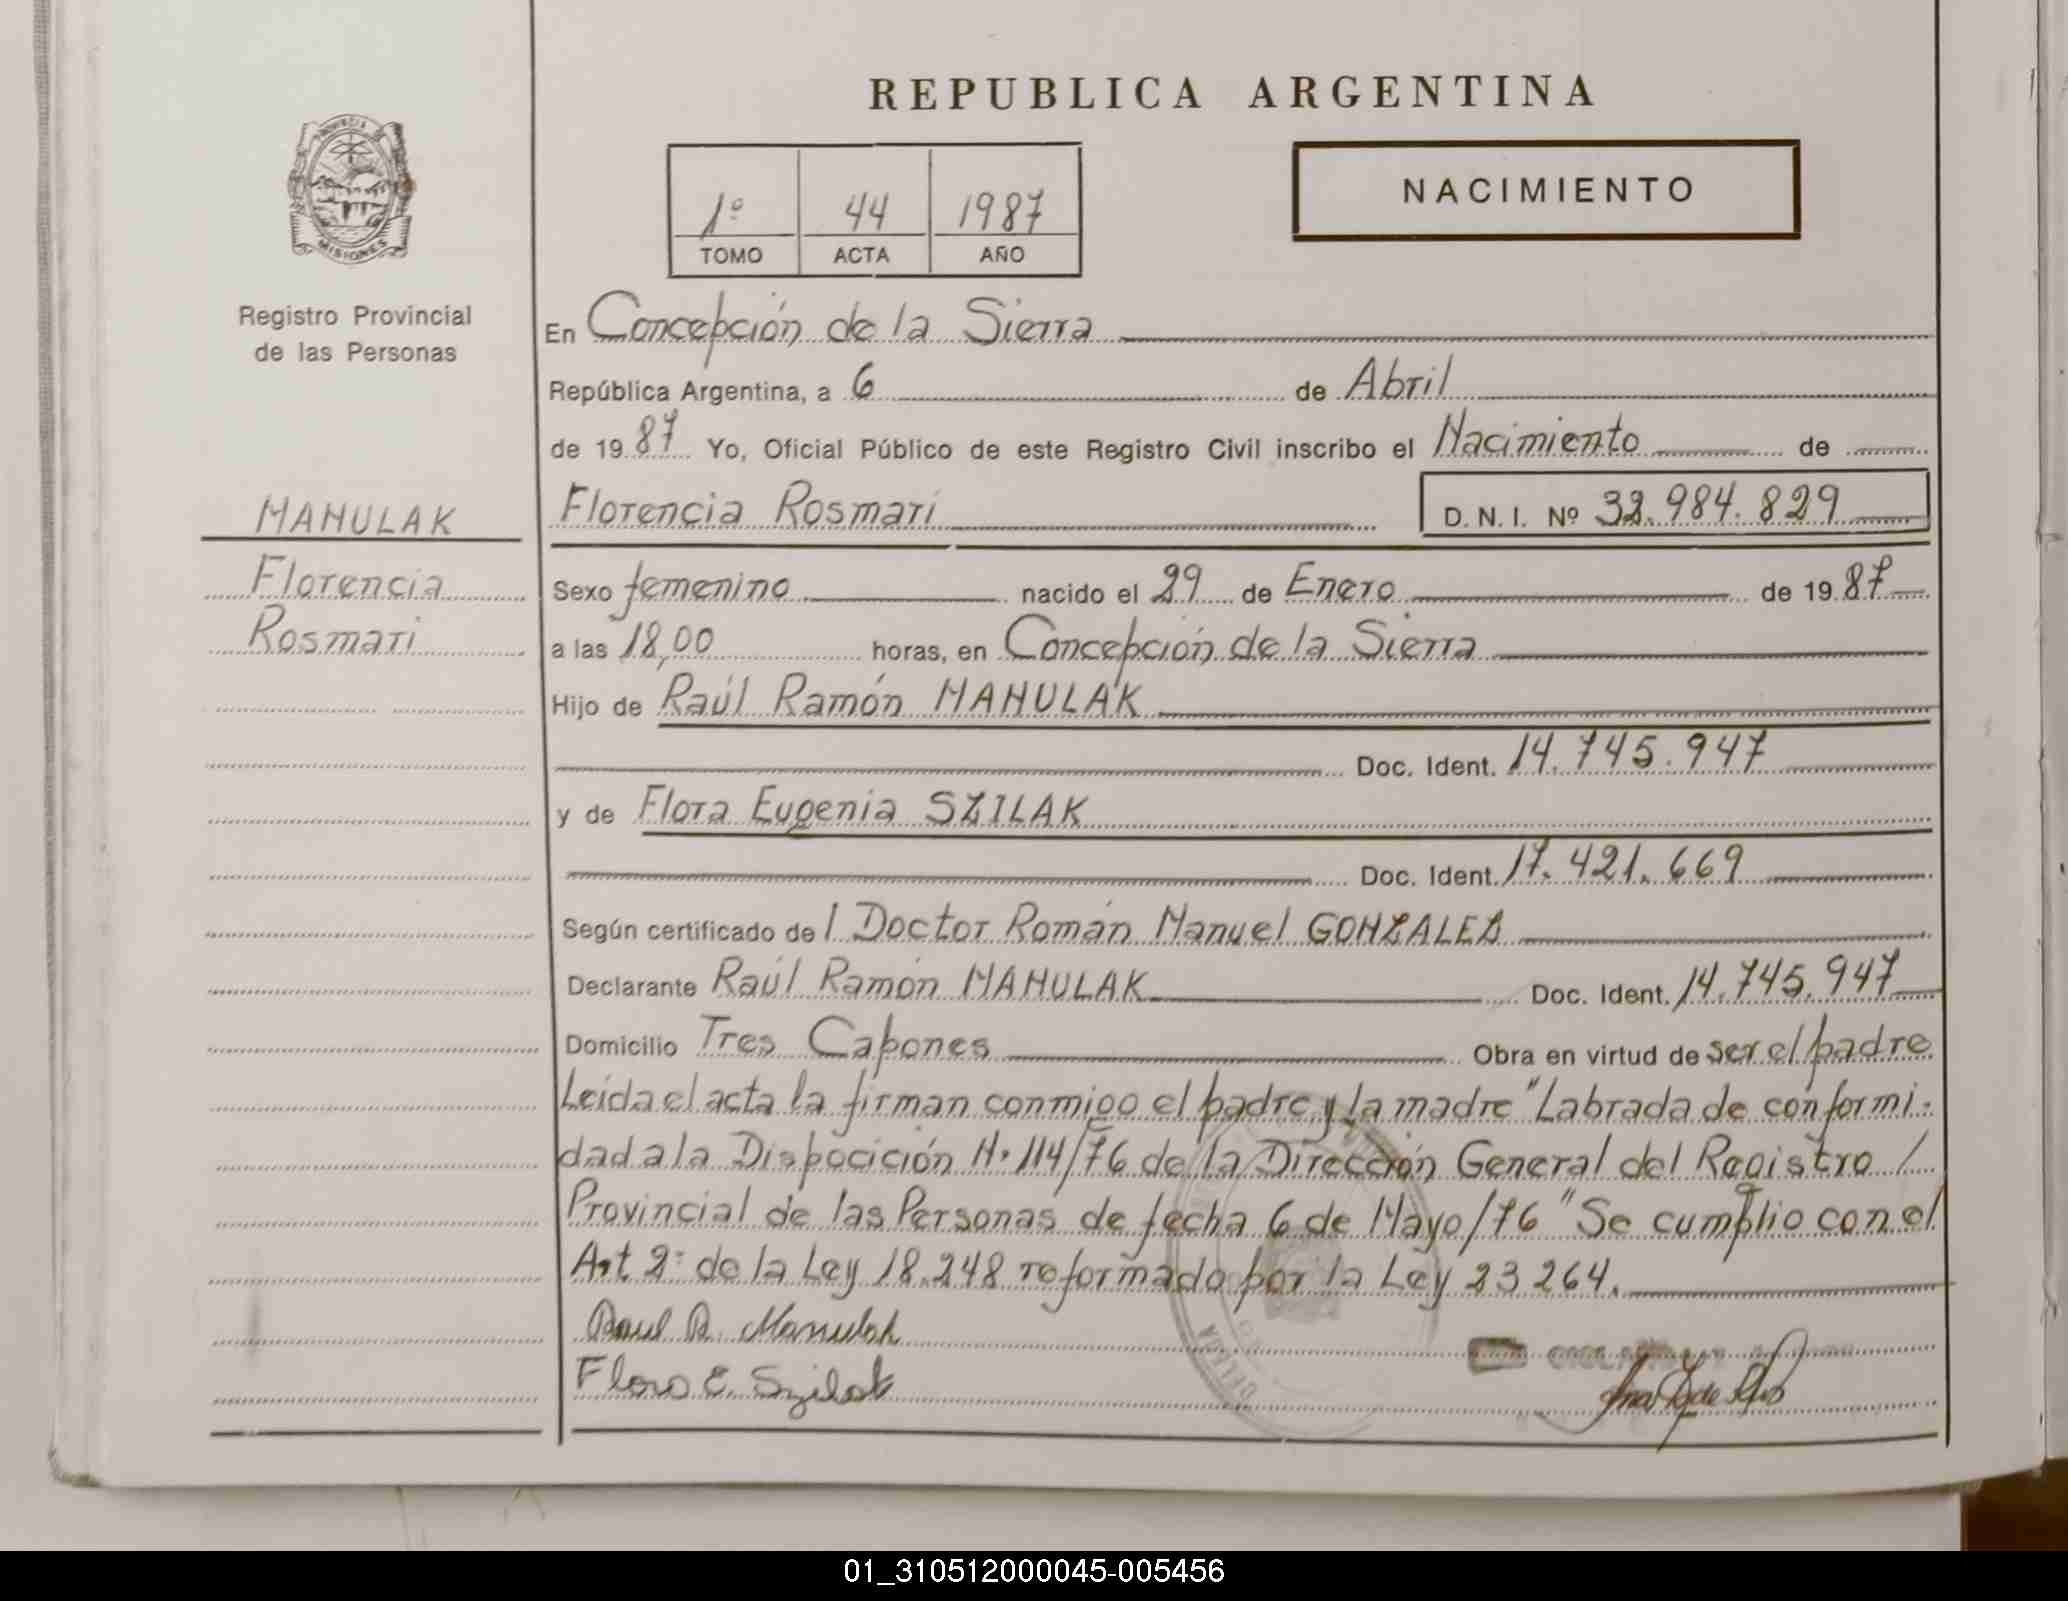 REPUBLICA ARGENTINA
PROVINCIA DE
MISIONES
Registro Provincial
de las Personas
1º 44 1987
TOMO ACTA AÑO
NACIMIENTO
En Concepción de la Sierra
República Argentina, a 6 de Abril
de 19 87 Yo, Oficial Público de este Registro Civil inscribo el Nacimiento de
MANULAK
Florencia
Rosmari
Florencia Rosmari D. N. I. Nº 32.984.829
Sexo femenino nacido el 29 de Enero de 19 87
a las 18,00 horas, en Concepción de la Sierra
Hijo de Raúl Ramón MANULAK
Doc. Ident. 14.745.947
y de Flora Eugenia SZILAK
Doc. Ident. 17.421.669
Según certificado de l Doctor Román Manuel GONZALEZ
Declarante Raúl Ramón MANULAK Doc. Ident. 14.745.947
Domicilio Tres Capones Obra en virtud de ser el padre
Leída el acta la firman conmigo el padre y la madre "Labrada de conformi-
dad a la Dispocición N. 114/76 de la Dirección General del Registro /
Provincial de las Personas de fecha 6 de Mayo/76 " Se cumplio con el
Art 2: de la Ley 18.248 reformado por la Ley 23 264.
Raul R. Manulak
Flora E. Szilak
01_310512000045-005456